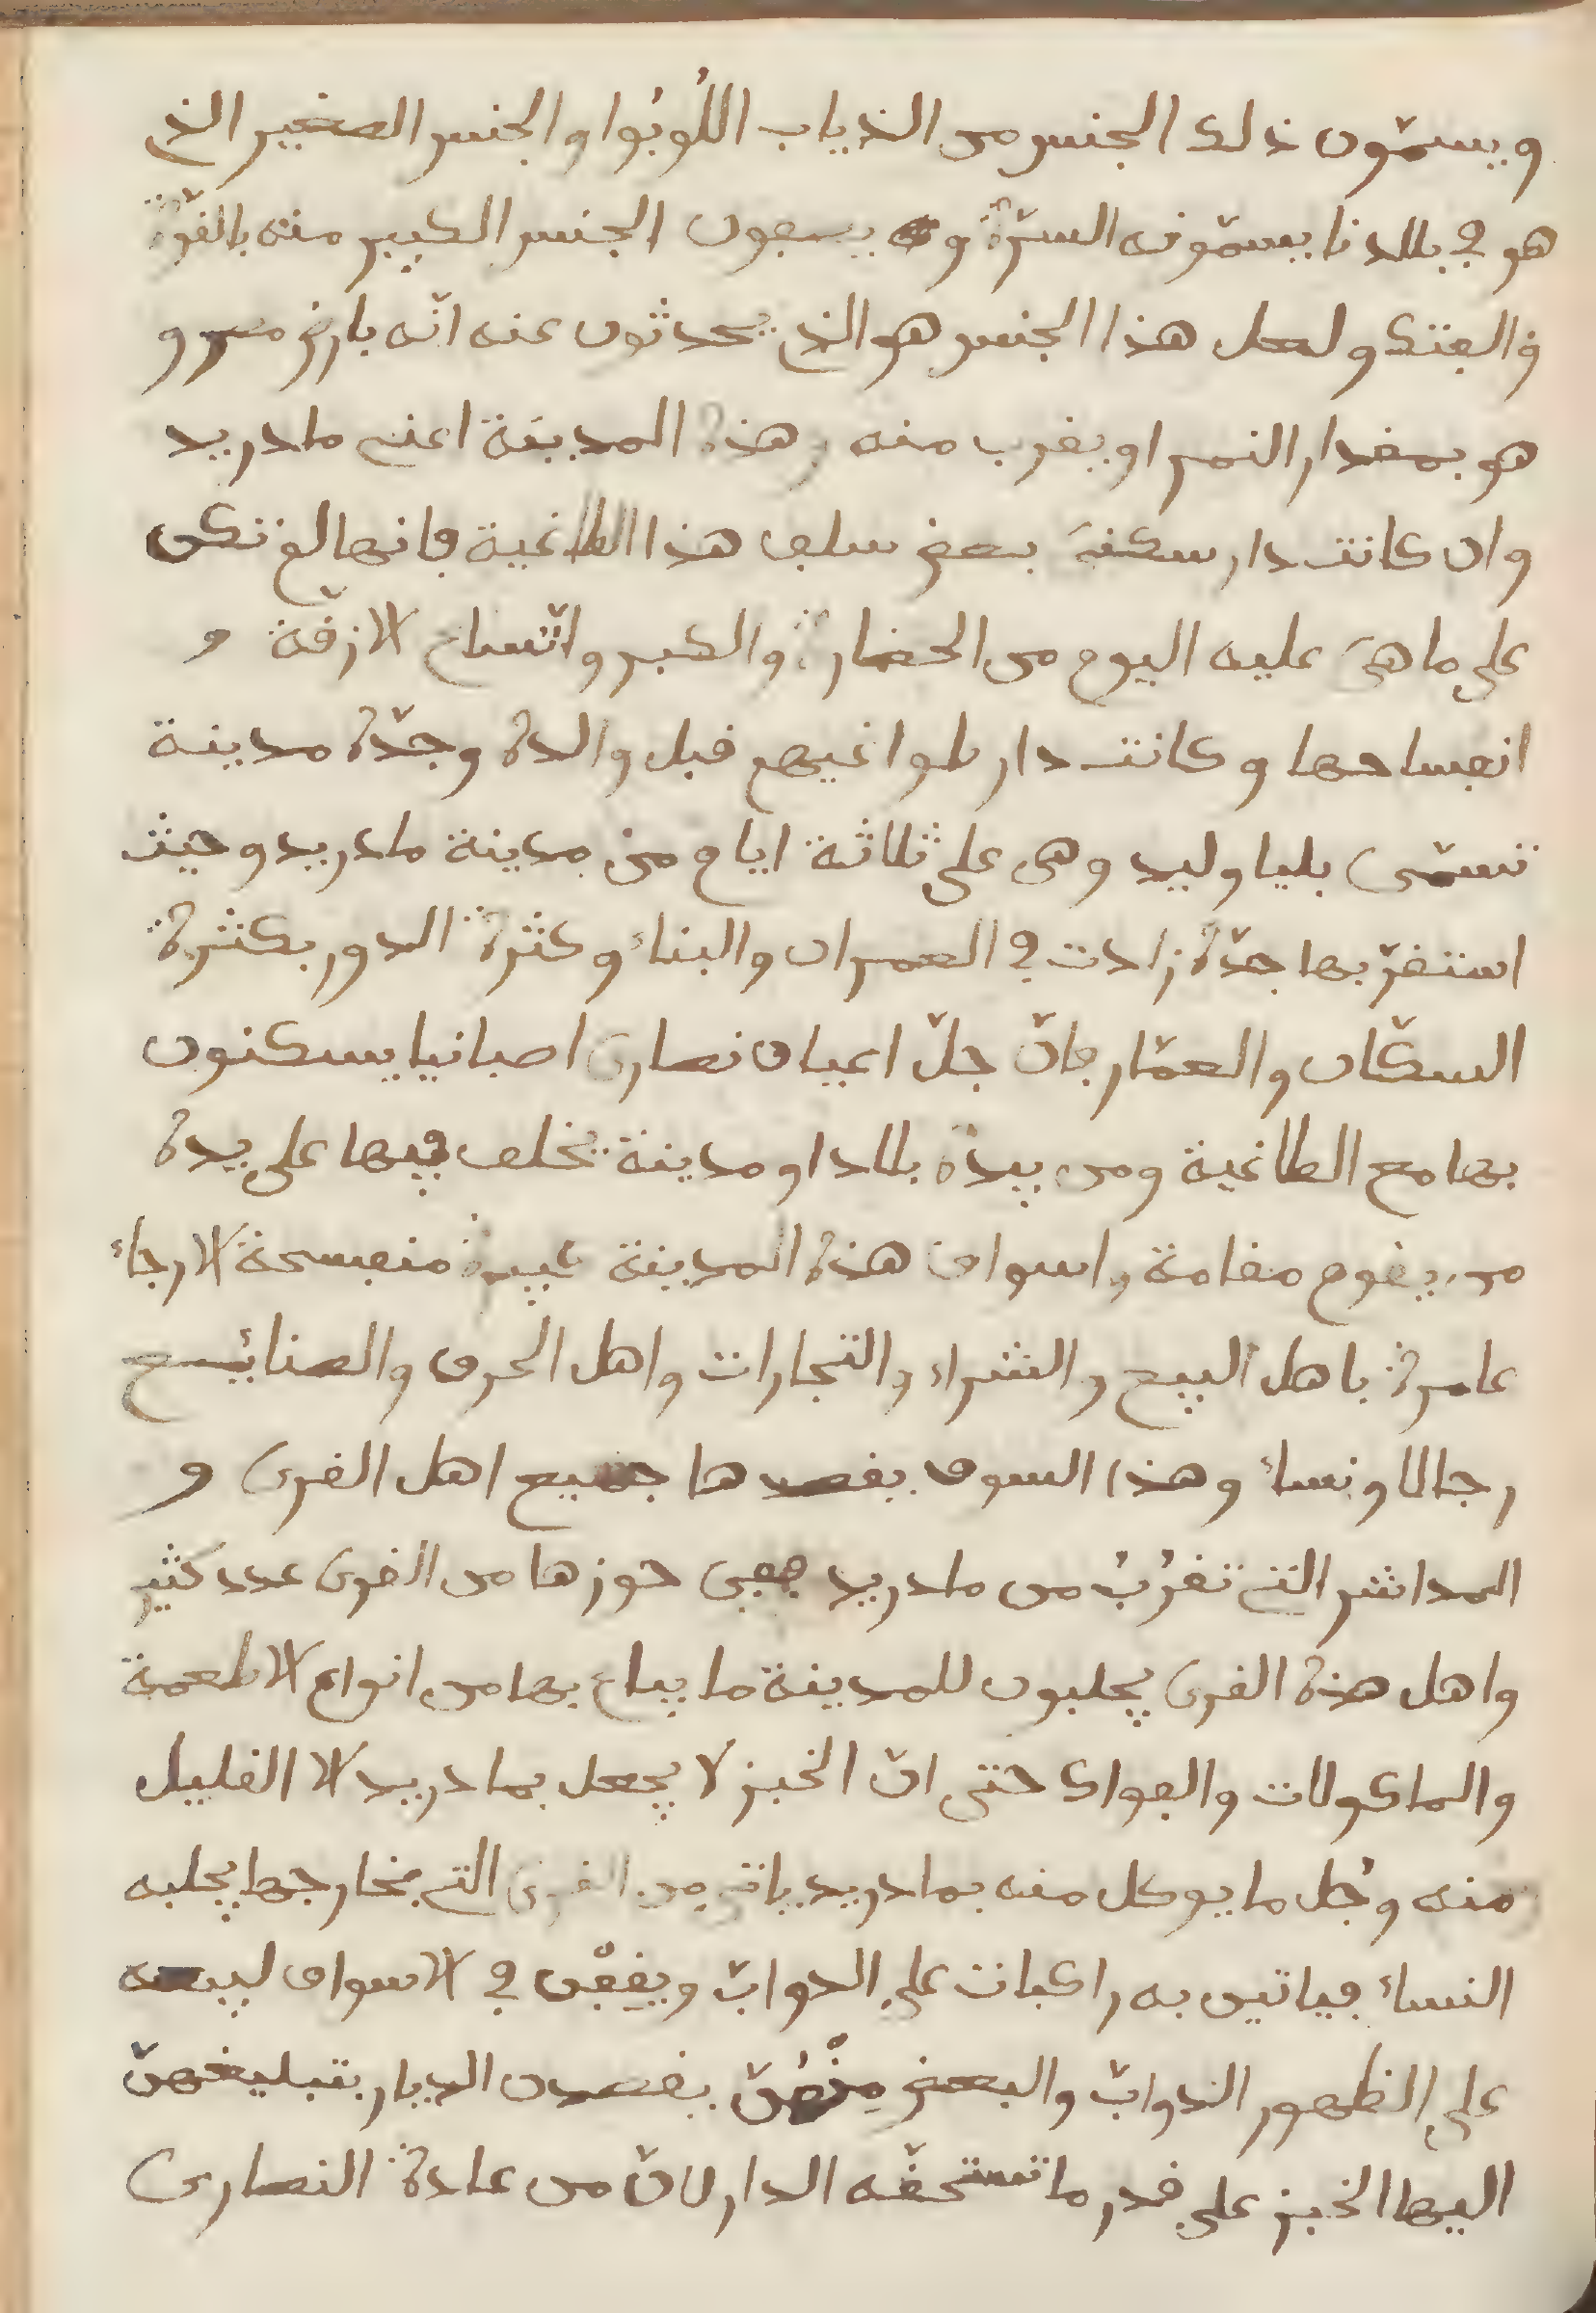 ويسمّون ذلك الجنس من الذياب اللُوبُوا والجنس الصغير الذي
هو في بلادنا يسمّونه السرّة ويصفون الجنس الكبير منه بالقوّة
والفتك ولعل هذا الجنس هو الذي يحدثون عنه انّه بارض مصر و
هو بمقدار النمر او يقرب منه وهذه المدينة اعني مادريد
وان كانت دار سكنىَ بعض سلف هذا الطاغية فانها لم تكن
على ما هيَ عليه اليوم من الحضارة والكبر واتّساع الازقّة و
انفساحها وكانت دار طواغيهم قبل والده وجدّه مدينة
تسمّى بلياوليد وهي على ثلاثة ايام من مدينة مادريد وحيث
استقرّ بها جدّه زادت في العمران والبناء وكثرة الدور بكثرة
السكّان والعمّار فانّ جلّ اعيان نصارى اصبانيا يسكنون
بها مع الطاغية ومن بيده بلاد او مدينة يخلف فيها على يده
من يقوم مقامه واسواق هذه المدينة كبيرة منفسحة الارجاء
عامرة باهل البيع والشراء والتجارات واهل الحرف والصنائع
رجالا ونساء وهذا السوق يقصدها جميع اهل القرى و
المداشر التي تقرُبُ من مادريد ففي حوزها من القرى عدد كثير
واهل هذه القرى يجلبون للمدينة ما يباع بها من انواع الاطعمة
والماكولات والفواكه حتى انّ الخبز لا يجعل بمادريد الا القليل
منه وجُل ما يوكل منه بمادريد ياتي من القرى التي بخارجها يجلبه
النساء فياتين به راكبات على الدوابّ ويقِفْن في الاسواق لبيعه
على الظهور الدوابّ والبعض مِنْهُنّ يقصدن الديار بتبليغهنّ
اليها الخبز على قدر ما تستحقّه الدار لانّ من عادة النصارى